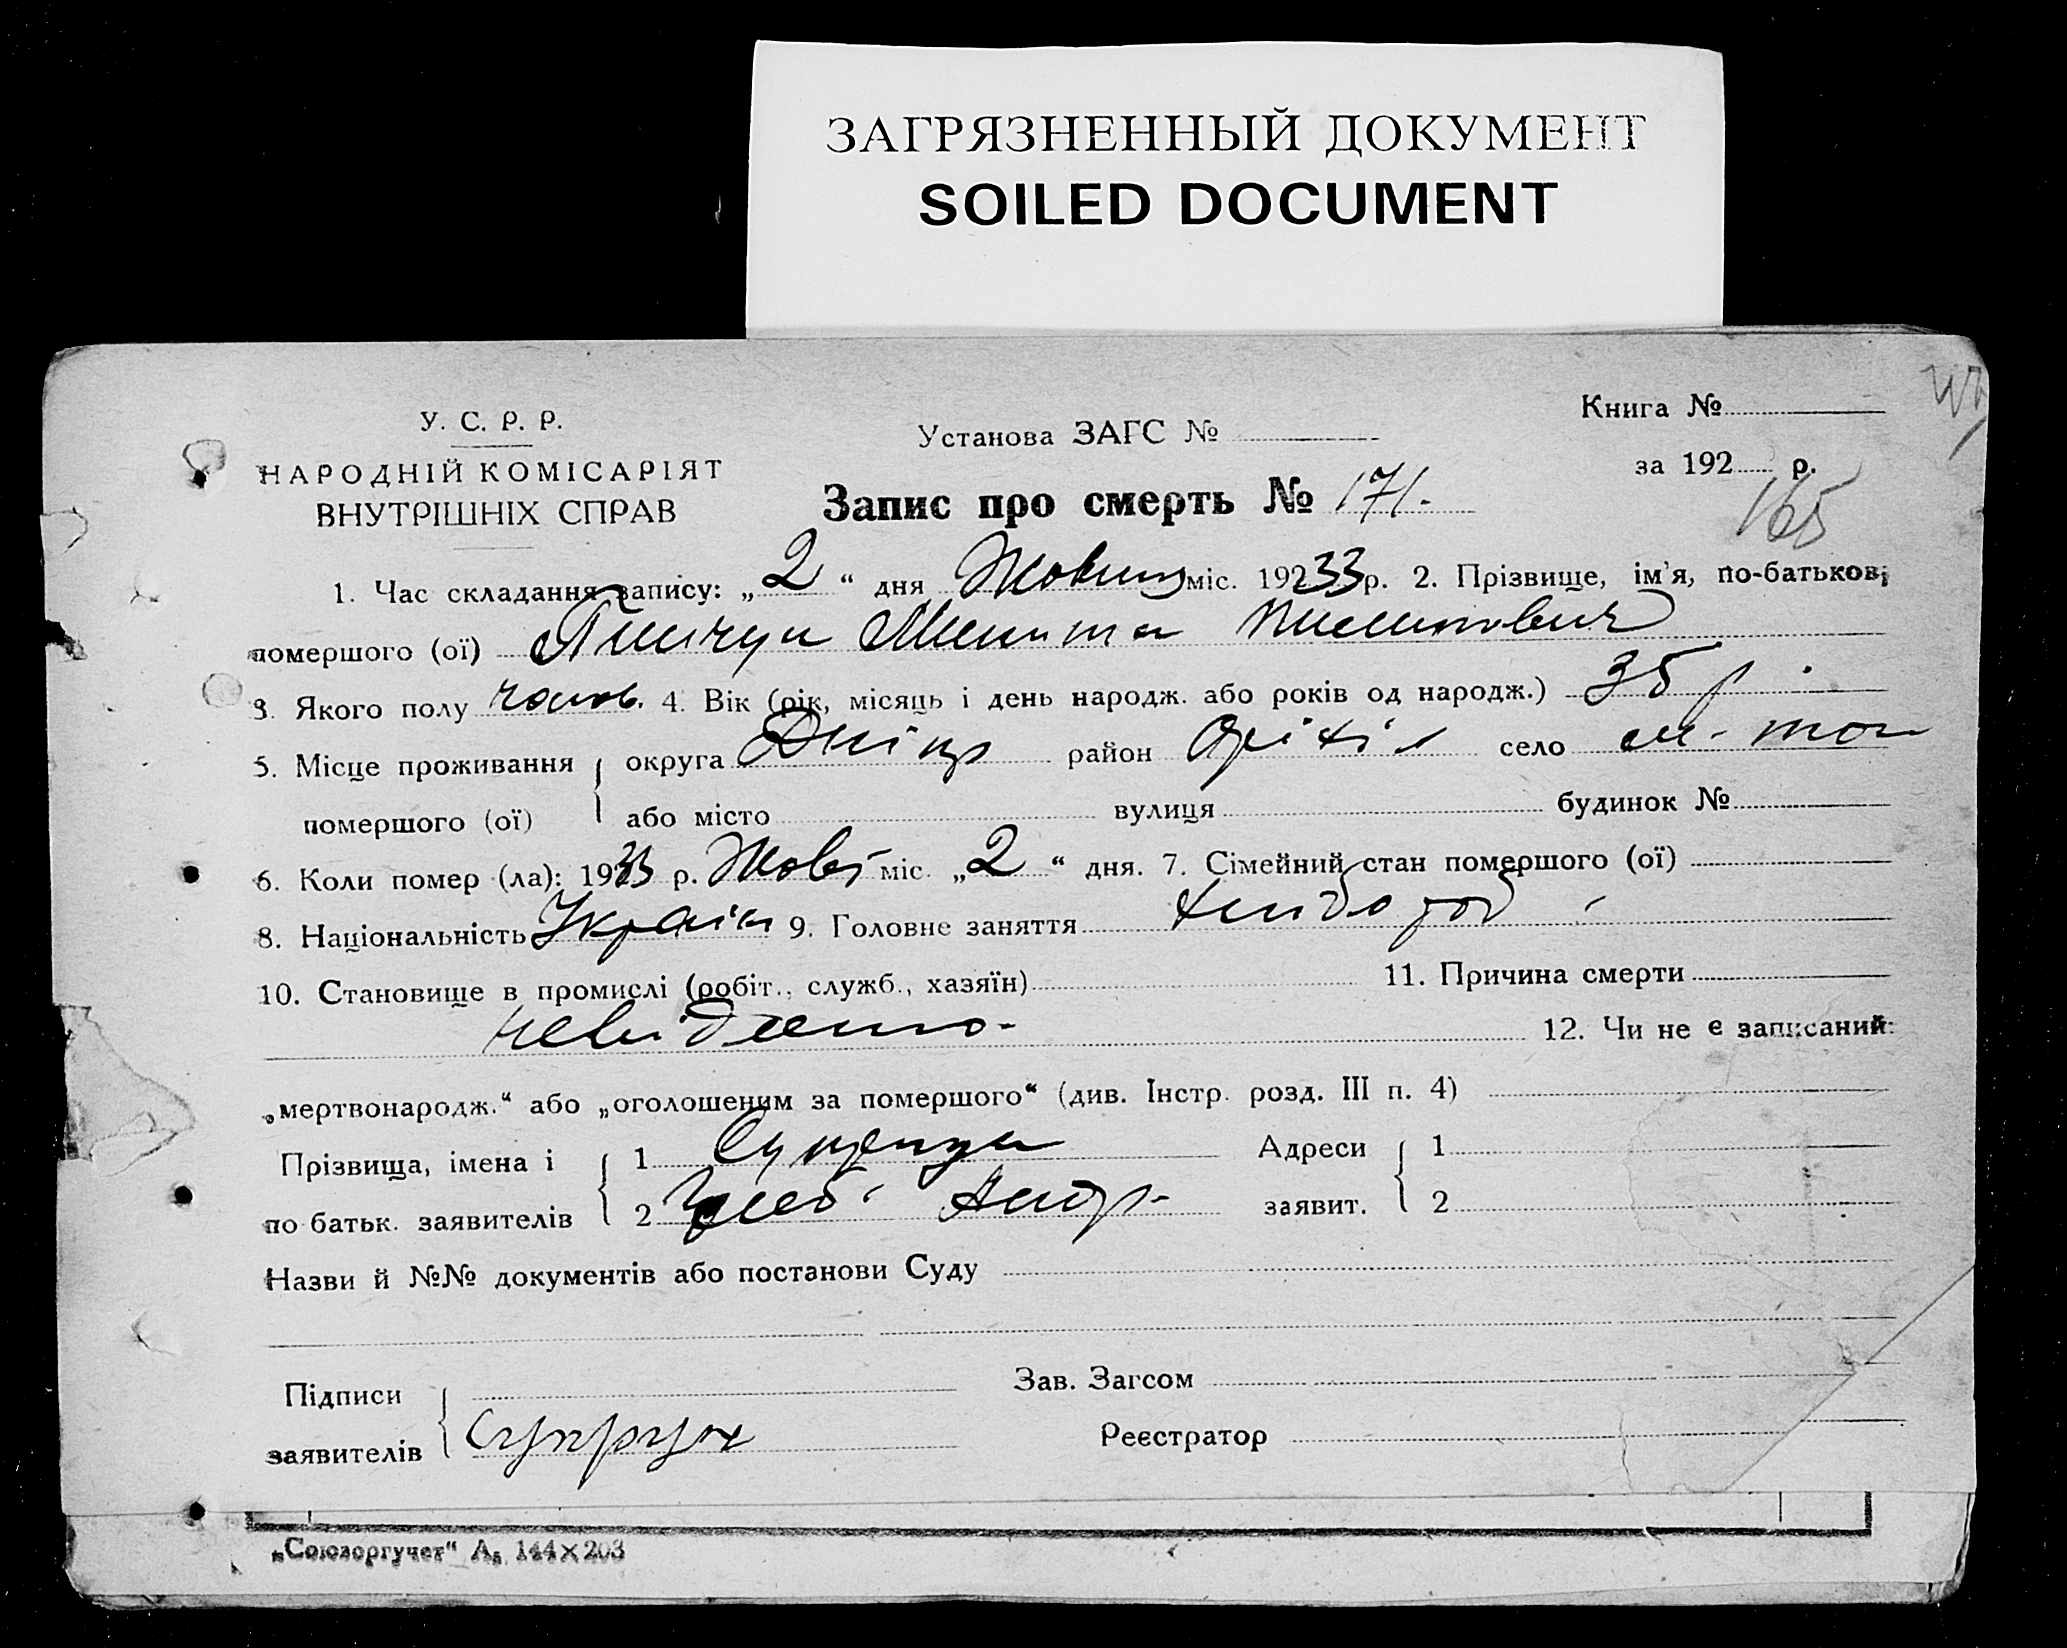 ЗАГРЯЗНЕННЫЙ ДОКУМЕНТ
SOILED DOCUMENT
У. С. Р. Р.
НАРОДНІЙ КОМІСАРІЯТ
ВНУТРІШНІХ СПРАВ
Установа ЗАГС №
Книга №
за 192 р.
165
Запис про смерть № 171.
1. Час складання запису: „2“ дня Жовтня міс. 19233 р. 2. Прізвище, ім'я, по-батькові
помершого (ої) Микита Пилипович
3. Якого полу чолов. 4. Вік (рік, місяць і день народж. або років од народж.) 35 р.
5. Місце проживання округа Дніпр район село
помершого (ої) або місто вулиця будинок №
6. Коли помер (ла): 1933 р. Жовт міс. „2“ дня. 7. Сімейний стан помершого (ої)
8. Національність Україн 9. Головне заняття хлібороб
10. Становище в промислі (робіт., служб., хазяїн) 11. Причина смерти
невідомо- 12. Чи не є записаний:
„мертвонародж.“ або „оголошеним за помершого“ (див. Інстр. розд. III п. 4)
Прізвища, імена і 1 Адреси 1
по батьк. заявителів 2 заявит. 2
Назви й №№ документів або постанови Суду
Підписи Зав. Загсом
заявителів Супрун Реєстратор
„Союзоргучет“ А5 144×203